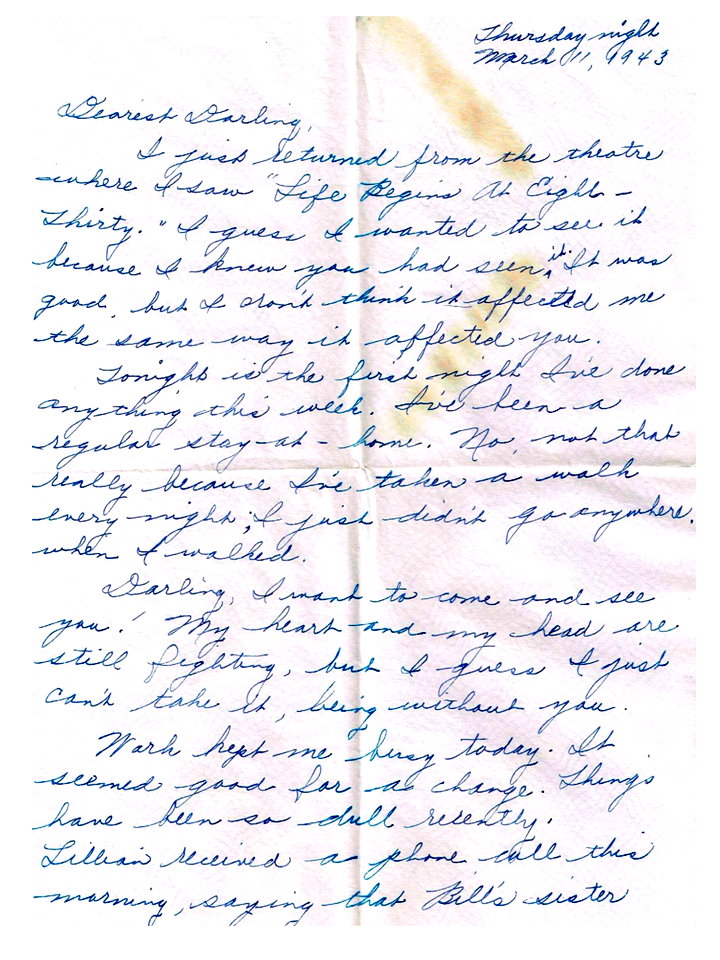 Thursday night
March 11, 1943
Dearest Darling,
I just returned from the theatre
where I saw "Life Begins At Eight-
Thirty." I guess I wanted to see it
because I knew you had seen it. It was
good, but I don't think it affected me
the same way it affected you.
Tonight is the first night I've done
anything this week. I've been a
regular stay-at-home. No, not that
really because I've taken a walk
every night; I just didn't go anywhere
when I walked.
Darling, I want to come and see
you! My heart and my head are
still fighting, but I guess I just
can't take it, being without you.
Work kept me busy today. It
seemed good for a change. Things
have been so dull recently.
Lillian received a phone call this
morning, saying that Bill's sister